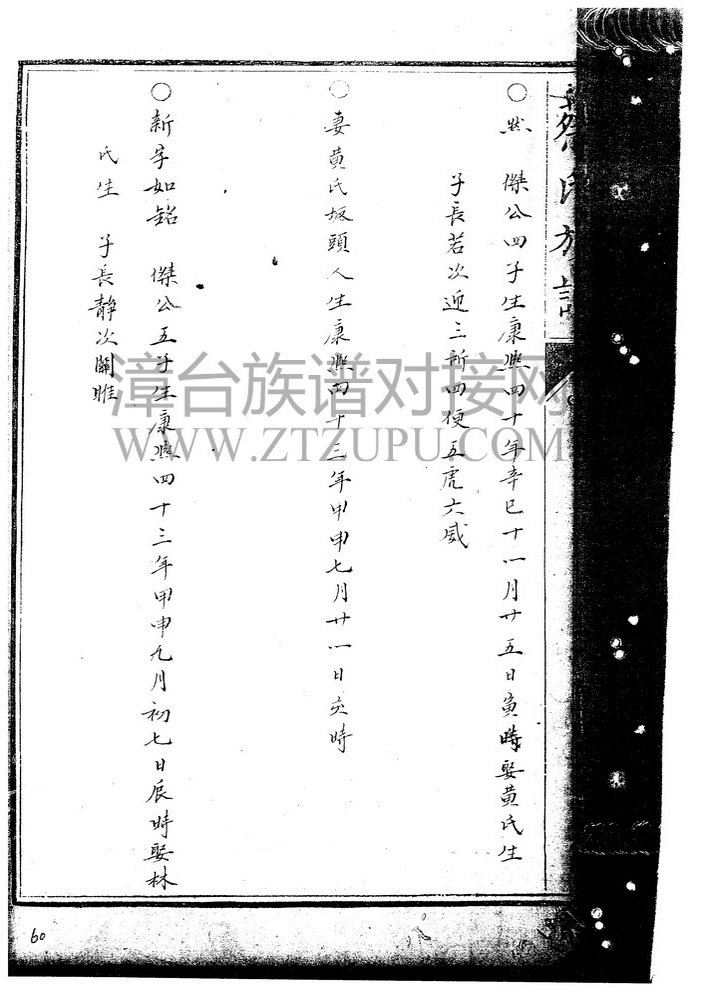 蔡氏族譜
○ 然 傑公四子生康熙四十年辛巳十一月廿五日寅時娶黄氏生
子長若次迎三所四便五虎六威
○ 妻黄氏坂頭人生康熙四十三年甲申七月廿一日亥時
○ 新字如銘 傑公五子生康熙四十三年甲申九月初七日辰時娶林
氏生 子長靜次關睢
漳台族谱对接网
WWW.ZTZUPU.COM
60